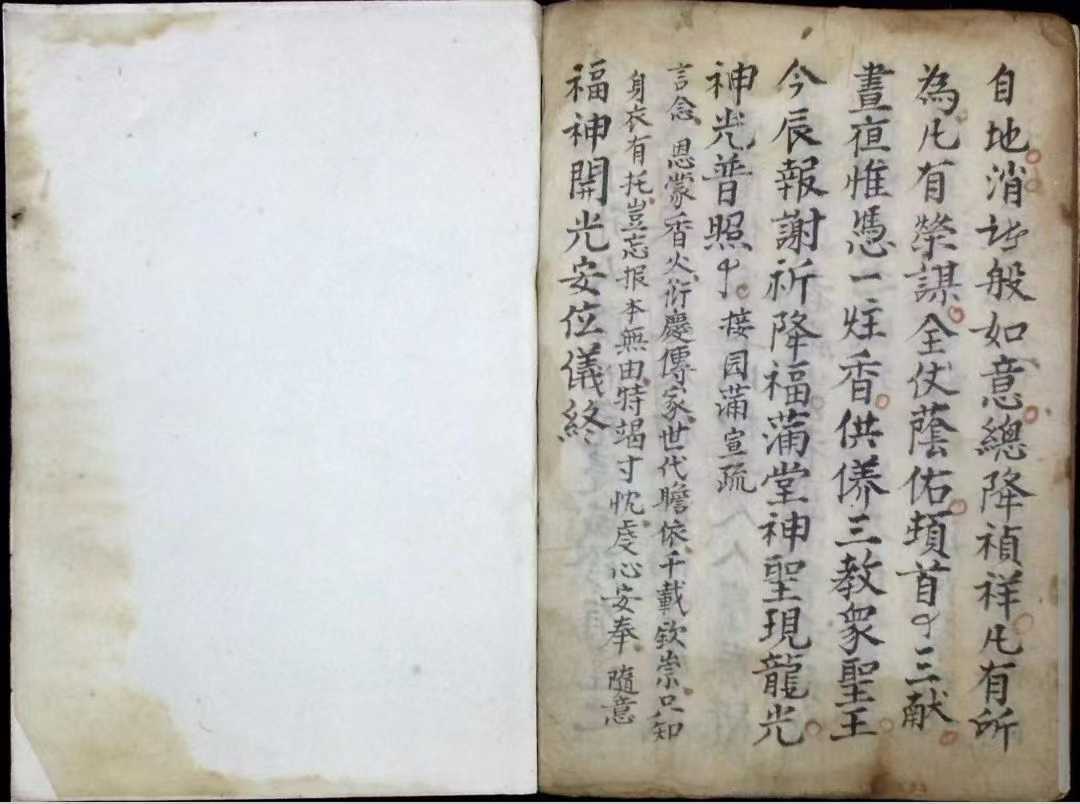 自地消诈般如意總降禎祥凡有所
為凡有榮謀全仗蔭佑頓首三献
晝夜惟憑一炷香供养三教衆聖王
今辰報謝祈降福蒲堂神聖現龍光
神光普照 接园蒲宣疏
言念恩蒙香火衍慶傳家世代瞻依千載欽崇只知
身衣有托豈忘报本無由特竭寸忱虔心安奉 隨意
福神開光安位儀終